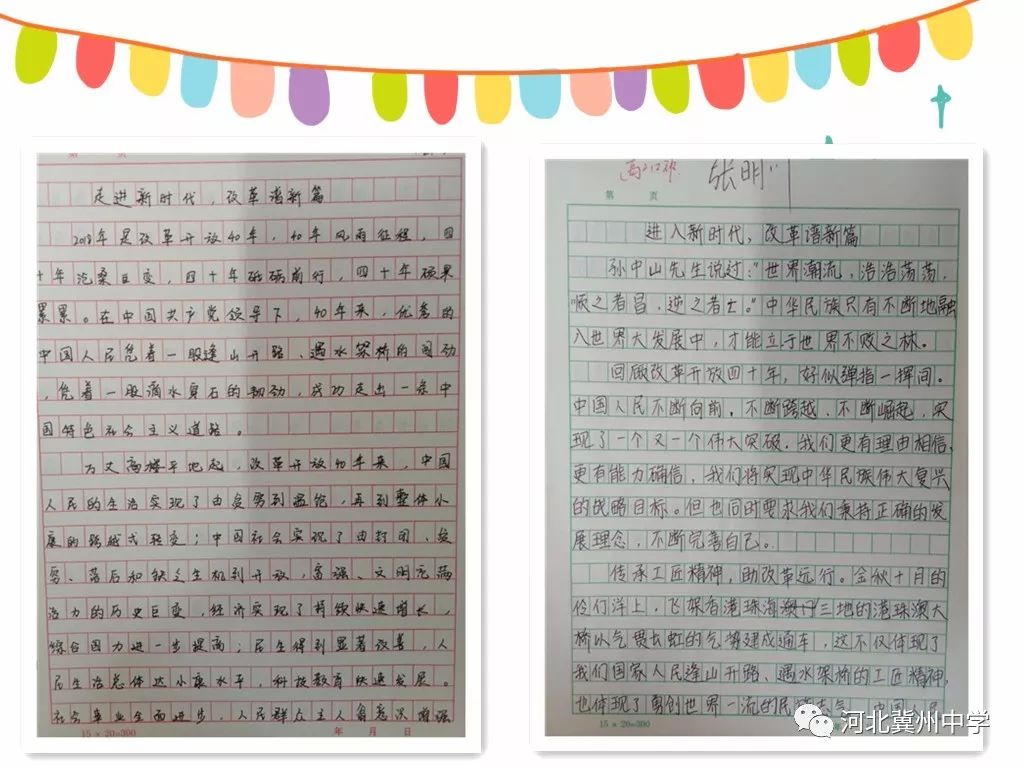 第 页
走进新时代，改革谱新篇
2018年是改革开放40年，40年风雨征程，四
十年沧桑巨变，四十年砥砺前行，四十年硕果
累累。在中国共产党领导下，40年来，优秀的
中国人民凭着一股逢山开路、遇水架桥的闯劲
，凭着一股滴水穿石的韧劲，成功走出一条中
国特色社会主义道路。
万丈高楼平地起，改革开放40年来，中国
人民的生活实现了由贫穷到温饱，再到整体小
康的跨越式转变；中国社会实现了由封闭、贫
穷、落后和缺乏生机到开放，富强、文明充满
活力的历史巨变，经济实现了持续快速增长，
综合国力进一步提高；民生得到显著改善，人
民生活总体达小康水平，科技教育快速发展。
社会事业全面进步，人民群众主人翁意识增强
15×20=300 年 月 日
张明
第 页
进入新时代，改革谱新篇
孙中山先生说过："世界潮流，浩浩荡荡，
顺之者昌，逆之者亡。"中华民族只有不断地融
入世界大发展中，才能立于世界不败之林。
回顾改革开放四十年，好似弹指一挥间。
中国人民不断向前，不断跨越，不断崛起，实
现了一个又一个伟大突破。我们更有理由相信，
更有能力确信，我们将实现中华民族伟大复兴
的战略目标。但也同时要求我们秉持正确的发
展理念，不断完善自己。
传承工匠精神，助改革远行。金秋十月的
伶仃洋上，飞架香港珠海澳门三地的港珠澳大
桥以气贯长虹的气势建成通车，这不仅体现了
我们国家人民逢山开路、遇水架桥的工匠精神，
也体现了勇创世界一流的民族志气。中国人民
15×20=300
河北冀州中学